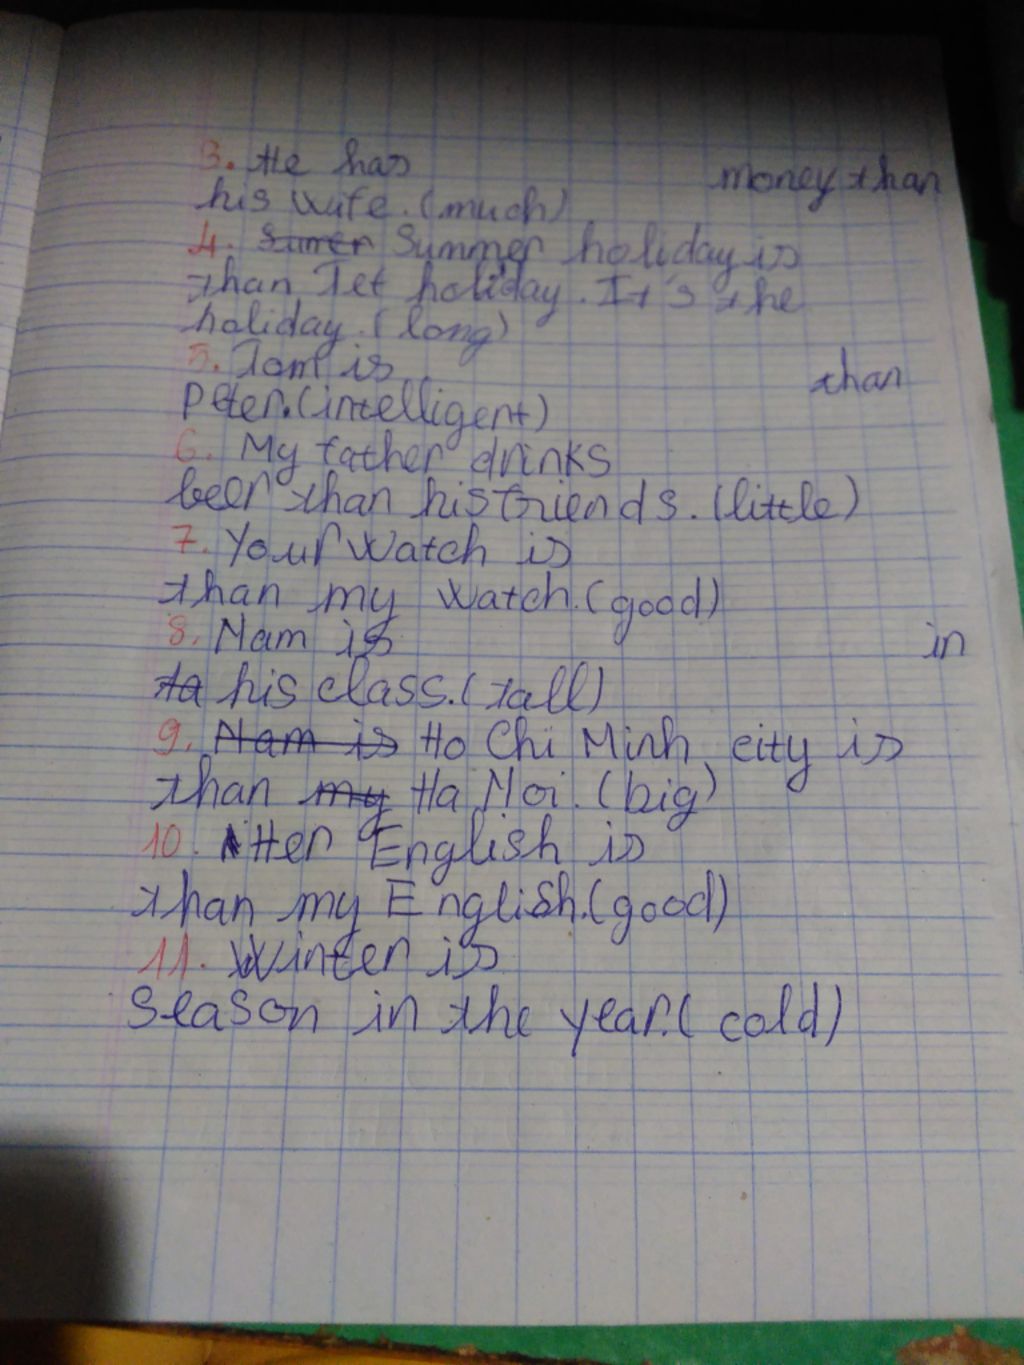 3. He has money than
his wife. (much)
4. Sumer Summer holiday is
than Tet holiday. It's the
holiday. (long)
5. Tom is than
Peter. (intelligent)
6. My father drinks
beer than his friends. (little)
7. Your watch is
than my watch. (good)
8. Nam is in
ta his class. (tall)
9. Nam is Ho Chi Minh city is
than my Ha Noi. (big)
10. Her English is
than my English. (good)
11. Winter is
season in the year. (cold)